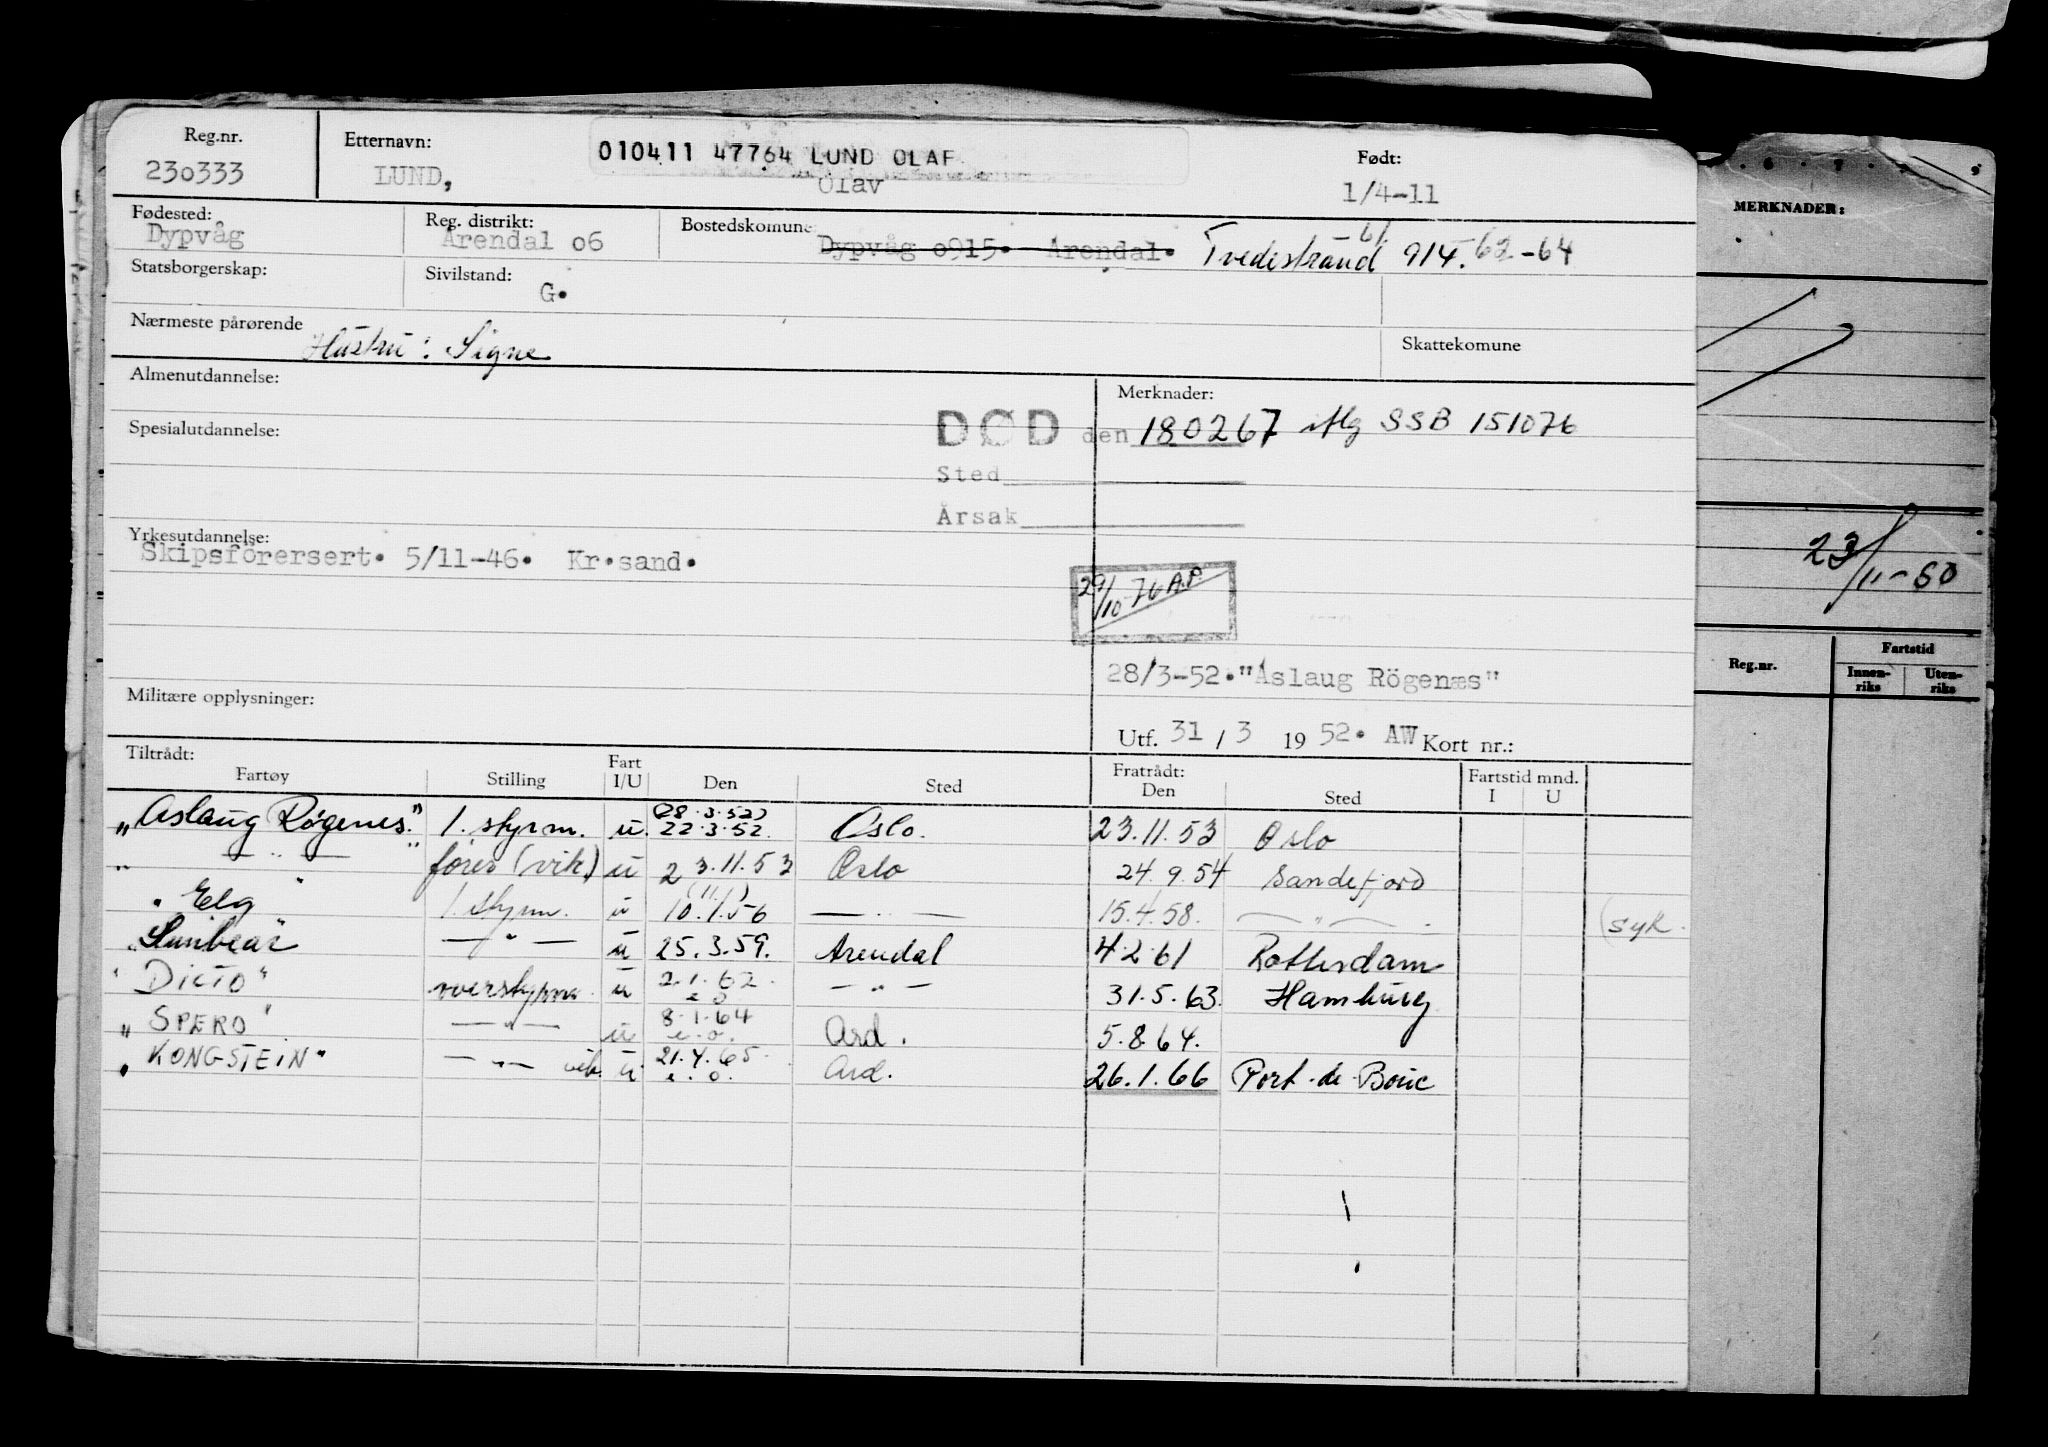 Reg.nr. Etternavn: 010411 47764 LUND OLAF Født:
230333 LUND, Olav 1/4-11
Fødested: Reg. distrikt: Bostedskommune:
Dypvåg Arendal 06 Dypvåg 0915. Arendal. Tvedestrand 914. 61 62-64
Statsborgerskap: Sivilstand:
G.
Nærmeste pårørende Skattekomune
Hustru: Signe
Almenutdannelse: Merknader:
DØD den 180267 iflg SSB 151076
Spesialutdannelse:
Sted
Årsak
Yrkesutdannelse:
Skipsförersert. 5/11-46. Kr.sand.
29/10-76 A.P.
28/3-52. "Aslaug Rögenæs"
Militære opplysninger:
Utf. 31 / 3 19 52. AW Kort nr.:
Tiltrådt: Fart Fratrådt: Fartstid mnd.
Fartøy Stilling I/U Den Sted Den Sted I U
(28.3.52)
"Aslaug Rógenes." 1. styrm. u. 22.3.52. Oslo. 23.11.53 Oslo
" — " — " fører (vik.) u 23.11.53 Oslo 24.9.54 Sandefjord
(11/1)
"Elg" 1. styrm. u 10.1.56 — " — 15.4.58. — " — . (syk.
"Sunbear" — " — u 25.3.59. Arendal 4.2.61 Rotterdam
"DICTO" overstyrm. u 2.1.62. e.o — " — 31.5.63. Hamburg
"SPERO" — " — u 8.1.64 e.o. Ard. 5.8.64.
"KONGSTEIN" — " — vik. u 21.4.65. e.o. Ard. 26.1.66 Port-de-Bouc
MERKNADER:
23/11-50
Reg.nr. Fartstid
Innenriks Utenriks